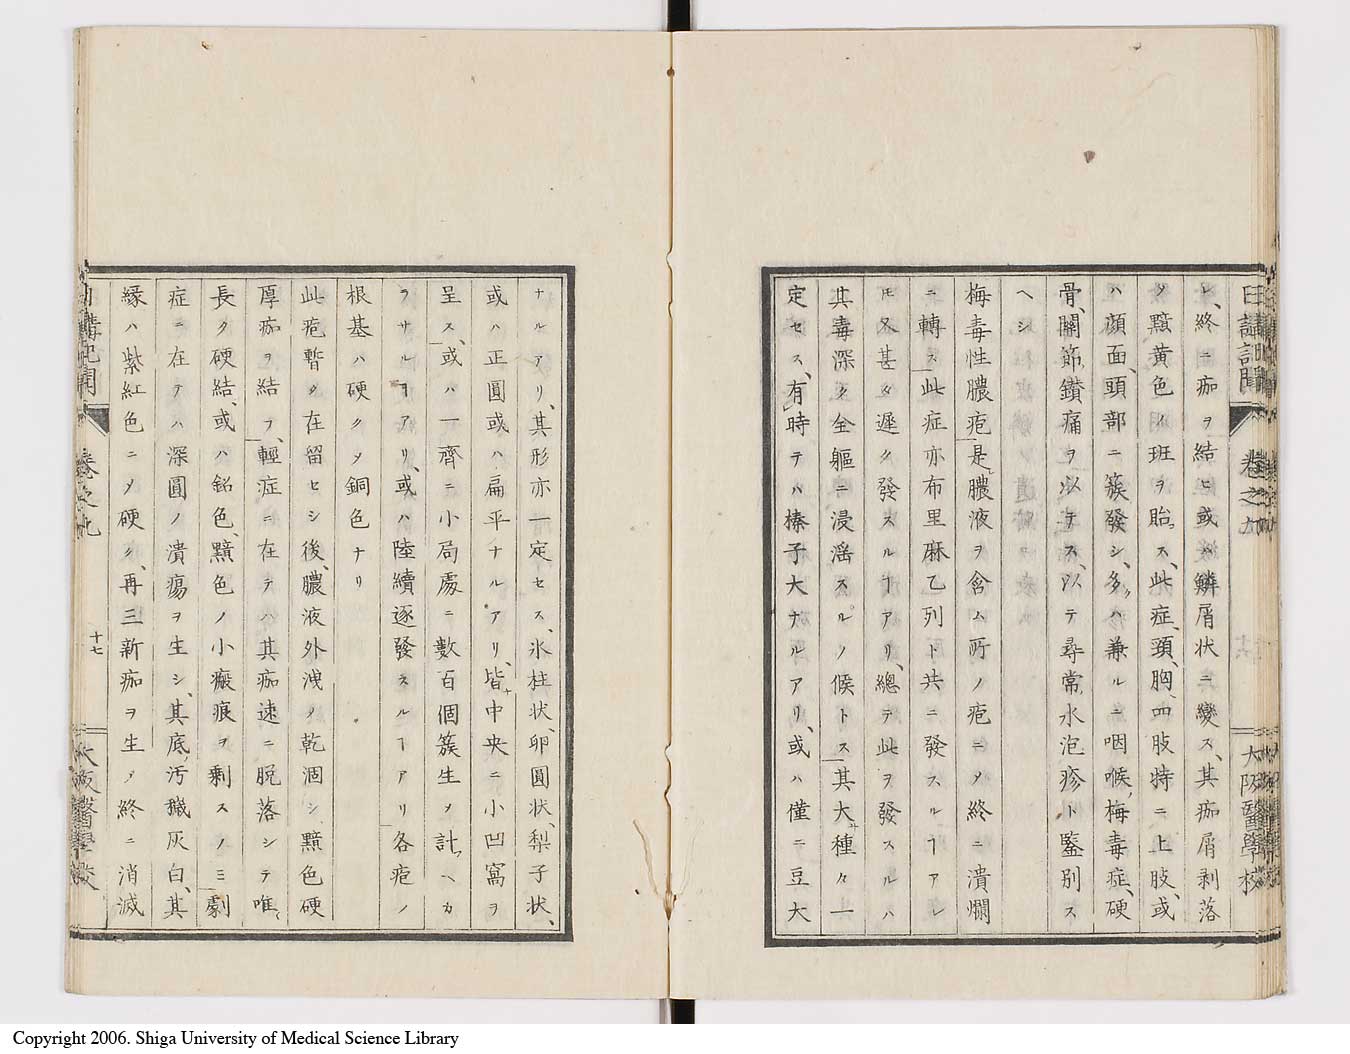 日講記聞 卷之九 大阪醫學校
ヒ、終ニ痂ヲ結ヒ或ハ鱗屑状ニ變ス、其痂屑剥落
乄黯黄色ノ斑ヲ貽ス、此症、頸、胸、四肢特ニ上肢、或
ハ顔面、頭部ニ簇發シ、多クハ兼ルニ咽喉、梅毒症、硬
骨、關節、鑚痛ヲ以テス、以テ尋常、水泡疹ト鑒別ス
ヘシ
梅毒性膿疱 是膿液ヲ含ム所ノ疱ニ乄終ニ潰爛
ニ轉ス、此症亦布里麻乙列ト共ニ發スルヿアレ
𪜈又甚タ遲ク發スルヿアリ、總テ此ヲ發スルハ
其毒深ク全軀ニ浸淫スルノ候トス其大サ種々一
定セス、有時テハ榛子大ナルアリ、或ハ僅ニ豆大
ナルアリ、其形亦一定セス、氷柱状、卵圓状、梨子状、
或ハ正圓或ハ扁平ナルアリ、皆ナ中央ニ小凹窩ヲ
呈ス、或ハ一齊ニ小局處ニ數百個簇生乄計ヘカ
ラサルヿアリ、或ハ陸續逐發スルヿアリ各疱ノ
根基ハ硬ク乄銅色ナリ
此疱暫ク在留セシ後、膿液外洩乄乾涸シ黯色硬
厚痂ヲ結フ、輕症ニ在テハ其痂速ニ脱落シテ唯、
長ク硬結、或ハ銘色、黯色ノ小瘢痕ヲ剩スノミ劇
症ニ在テハ深圓ノ潰瘍ヲ生シ、其底、汚穢灰白、其
縁ハ紫紅色ニ乄硬ク、再三新痂ヲ生乄終ニ消滅
日講記聞 卷之九 十七 大阪醫學校
Copyright 2006. Shiga University of Medical Science Library